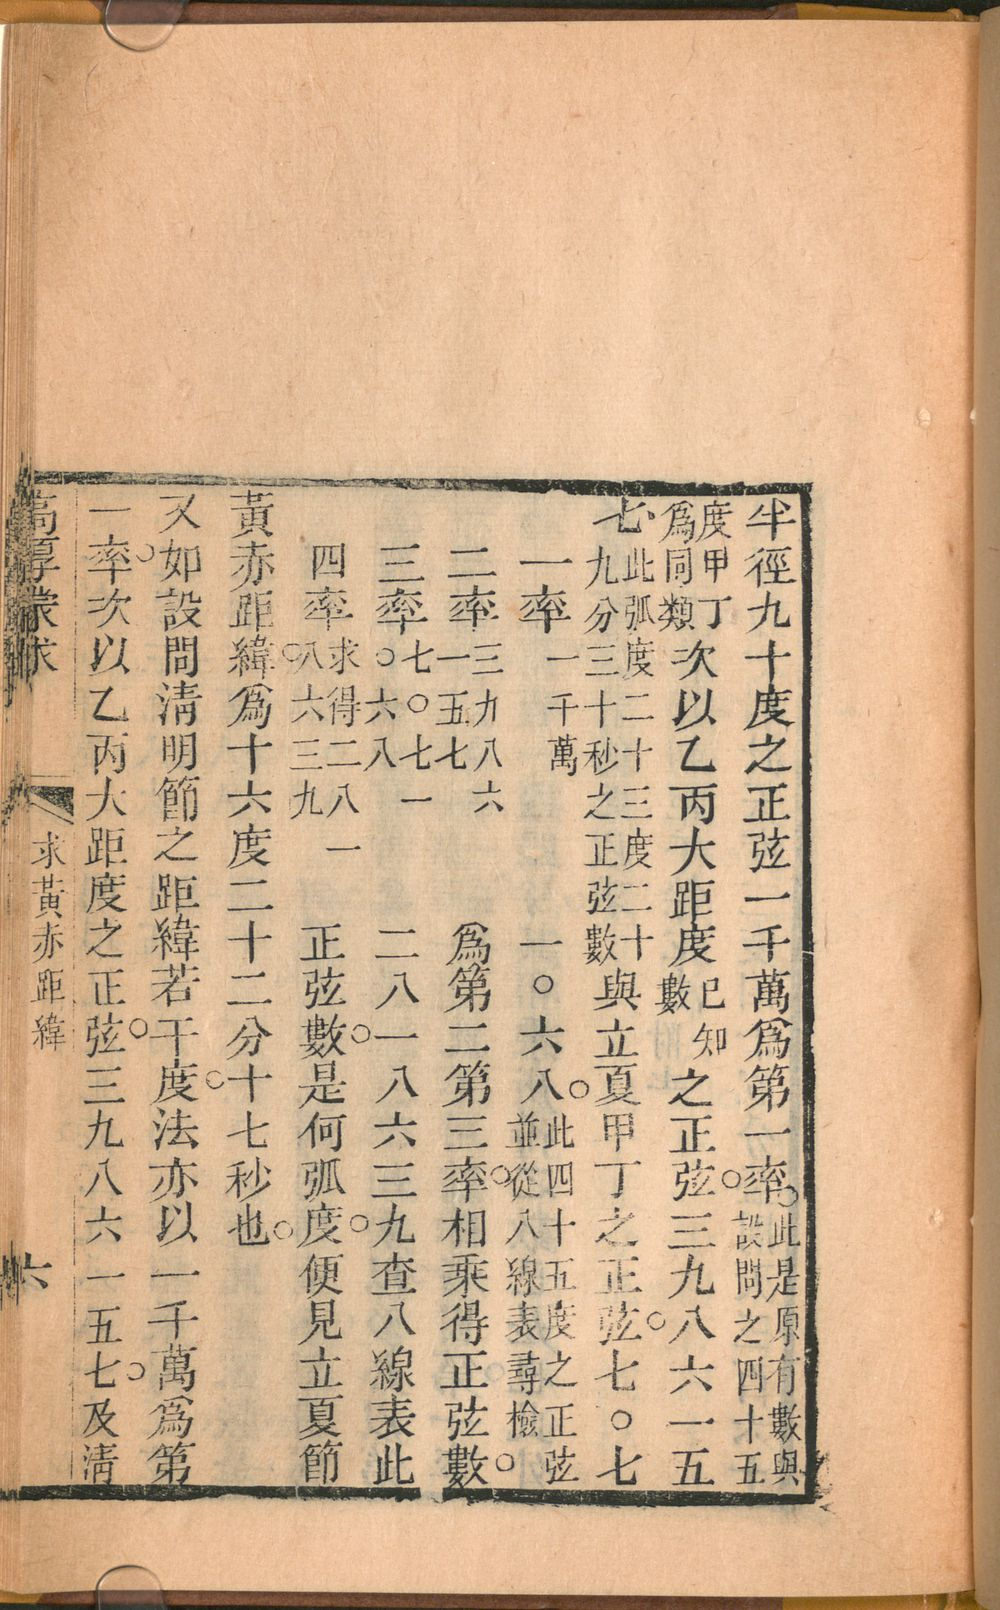 半徑九十度之正弦一千萬爲第一率。此是原有數與設問之四十五
度甲丁爲同類次以乙丙大距度已知數之正弦。三九八六一五
七此弧度二十三度二十九分三十秒之正弦數與立夏甲丁之正弦。七〇七
一率 一千萬 一〇六八。此四十五度之正弦並從八線表尋檢
二率 三九八六一五七 爲第二第三率。相乘得正弦數。
三率 七〇七一〇六八 二八一八六三九查八線表此
四率 求得二八一八六三九 正弦數。是何弧度。便見立夏節
黃赤距緯。爲十六度二十二分十七秒也。
又如設問清明節之距緯若干度。法亦以一千萬爲第
一率。次以乙丙大距度之正弦。三九八六一五七。及清
高厚蒙求 求黃赤距緯 六